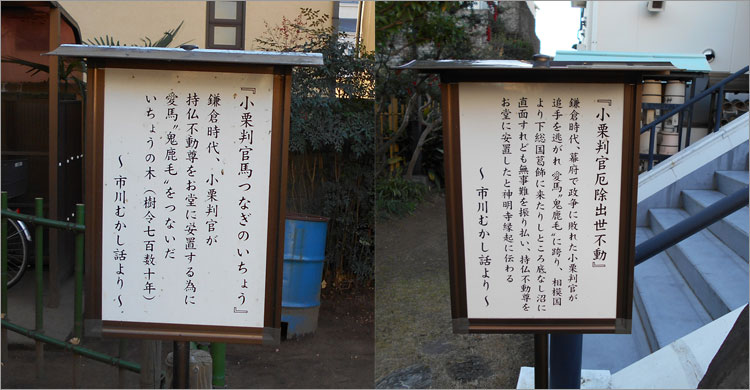 『小栗判官馬つなぎのいちょう』
鎌倉時代、小栗判官が
持仏不動尊をお堂に安置する為に
愛馬〝鬼鹿毛〟をつないだ
いちょうの木（樹令七百数十年）
～市川むかし話より～
『小栗判官厄除出世不動』
鎌倉時代、幕府で政争に敗れた小栗判官が
追手を逃がれ、愛馬〝鬼鹿毛〟に跨り、相模国
より下総国葛飾に来たりしところ底なし沼に
直面すれども無事難を振り払い、持仏不動尊を
お堂に安置したと神明寺縁起に伝わる
～市川むかし話より～